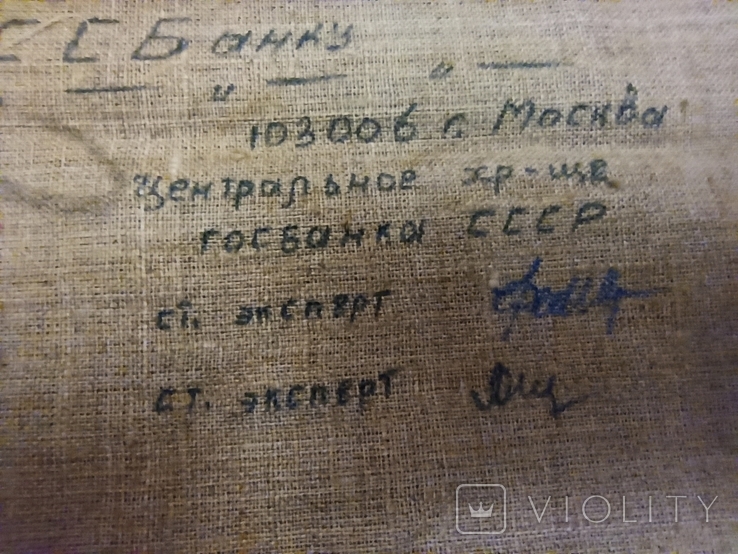 ССБанку
— " — " —
103006 г. Москва
центральное хр-ще
госбанка СССР
ст. эксперт
ст. эксперт
VIOLITY